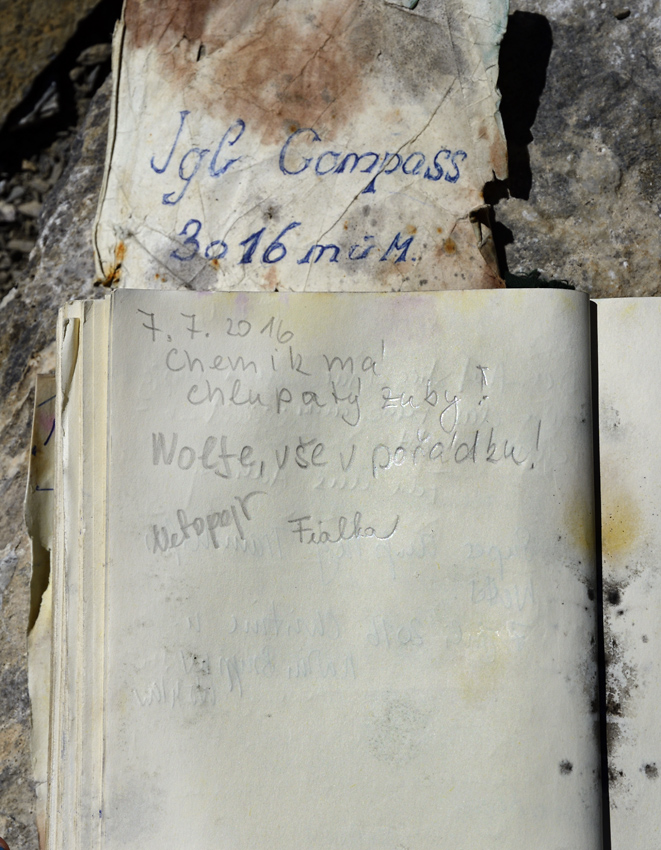 Jgl Compass
3016 müM
7. 7. 2016
Chemik má
chlupatý zuby!
Wolfe, vše v pořádku!
Netopejr Fialka